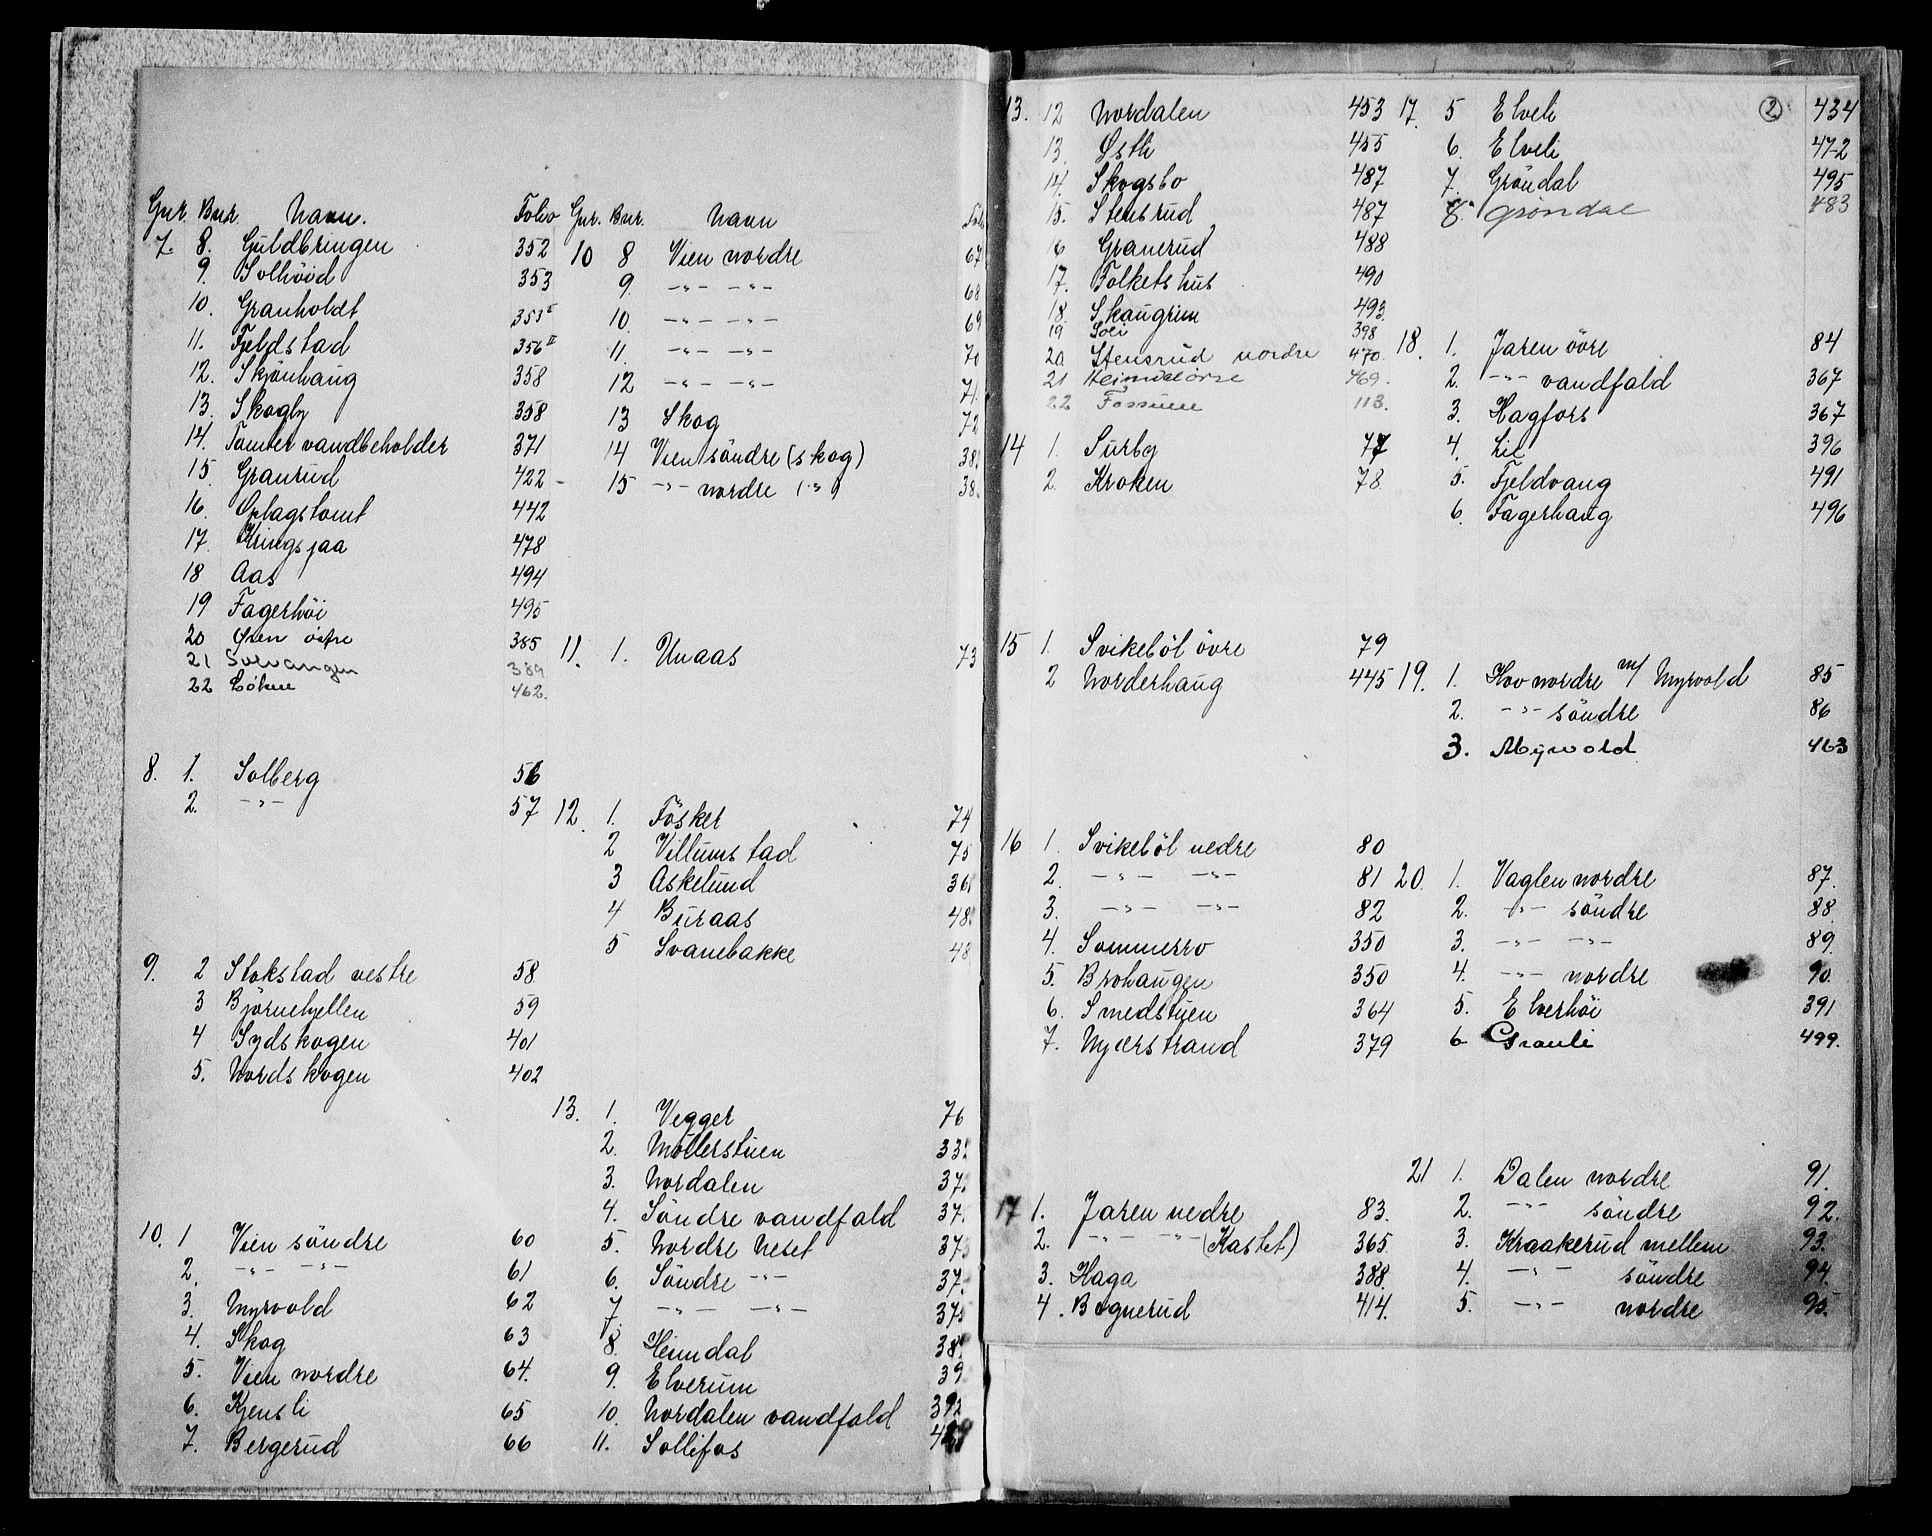 Gnr. Bnr. Navn. Folio
7. 8. Guldbringen 352
9. Solhöid 353
10. Granholdt 353
11. Fjeldstad 356 II
12. Skjönhaug 358
13. Skogly 358
14. Tomter vandbeholder 371
15 Granrud 422
16. Oplagstomt 442
17. Kringsjaa 478
18 Aas 494
19 Fagerhöi 495
20 Øren östre 385
21 Solvangen 389
22 Løkne 462.
8. 1. Solberg 56
2. -"- 57
9. 2 Stokstad vestre 58
3 Björnehjellen 59
4 Sydskogen 401
5. Nordskogen 402
10. 1 Vien söndre 60
2. -"- -"- 61
3. Myrvold 62
4. Skog 63
5. Vien nordre 64.
6. Kjensli 65
7. Bergerud 66
Gnr. Bnr. Navn
10 8 Vien nordre 67
9. -"- -"- 68
10. -"- -"- 69
11. -"- -"- 70
12 -"- -"- 71.
13 Skog 72
14 Vien söndre (skog) 38
15 -"- nordre (-"-) 38
11. 1. Unaas 73
12. 1. Fösker 74
2 Villumstad 75
3 Askelund 36
4 Buraas 48
5 Svanebakke 48
13. 1. Vegger 76
2. Möllerstuen 33
3. Nordalen 37
4. Söndre vandfald 37
5. Nordre Neset 37
6. Söndre -"- 37
7. -"- -"- 375
8. Heimdal 38
9. Elverum 39
10. Nordalen vandfald 392
11. Sollifos
13. 12 Nordalen 453
13. Østli 455
14. Skogsbo 487
15. Stensrud 487
16 Granerud 488
17. Folkets hus 490
18. Skaugrim 493
19 Soli 398
20 Stensrud nordre 470.
21 469.
22 Fossum 113.
14 1. Surby 77
2. Kroken 78
15 1. Svikeböl övre 79
2 Norderhaug 445
16 1. Svikeböl nedre 80
2. -"- -"- 81
3. -"- -"- 82
4. Sommerro 350
5. Brohaugen 350
6. Smedstuen 364
7. Mjærstrand 379
17 1. Jaren nedre 83.
2. -"- -"- (Kastet) 365
3. Haga 388
4. Bognerud 414.
2
17. 5 Elveli 434
6. Elveli 472
7. Gröndal 495
8. Grøndal 483
18. 1. Jaren övre 84
2. -"- vandfald 367
3. Hagfors 367
4. Li 396
5. Fjeldvang 491
6. Fagerhaug 496
19. 1. Hov nordre m/ Myrvold 85
2. -"- söndre 86
3. Myrvold 463
20. 1. Vaglen nordre 87.
2. -"- söndre 88
3. -"- -"- 89.
4. -"- nordre 90.
5. Elverhöi 391
6 Granli 499.
21 1. Dalen nordre 91.
2. -"- söndre 92.
3. Kraakerud mellem 93.
4. -"- söndre 94.
5. -"- nordre 95.